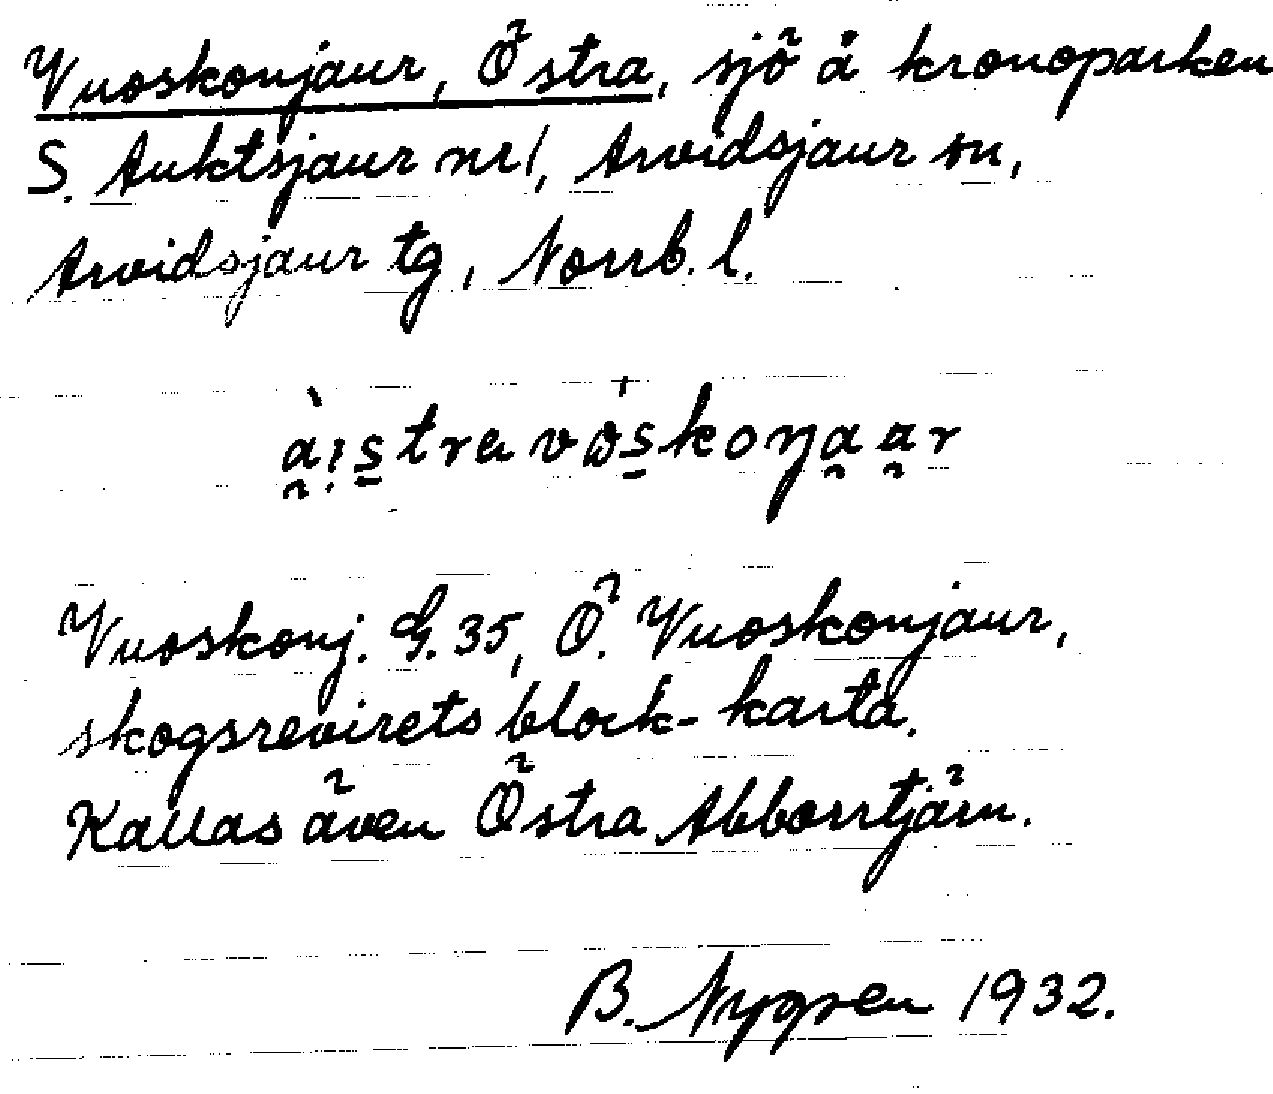 Vuoskonjaur, Östra, sjö å kronoparken
S. Auktsjaur nr 1, Arvidsjaur sn,
Arvidsjaur tg, Norrb. l.
Vuoskonj. G. 35, Ö. Vuoskonjaur,
skogsrevirets block-karta.
Kallas även Östra Abborrtjärn.
B. Nygren 1932.